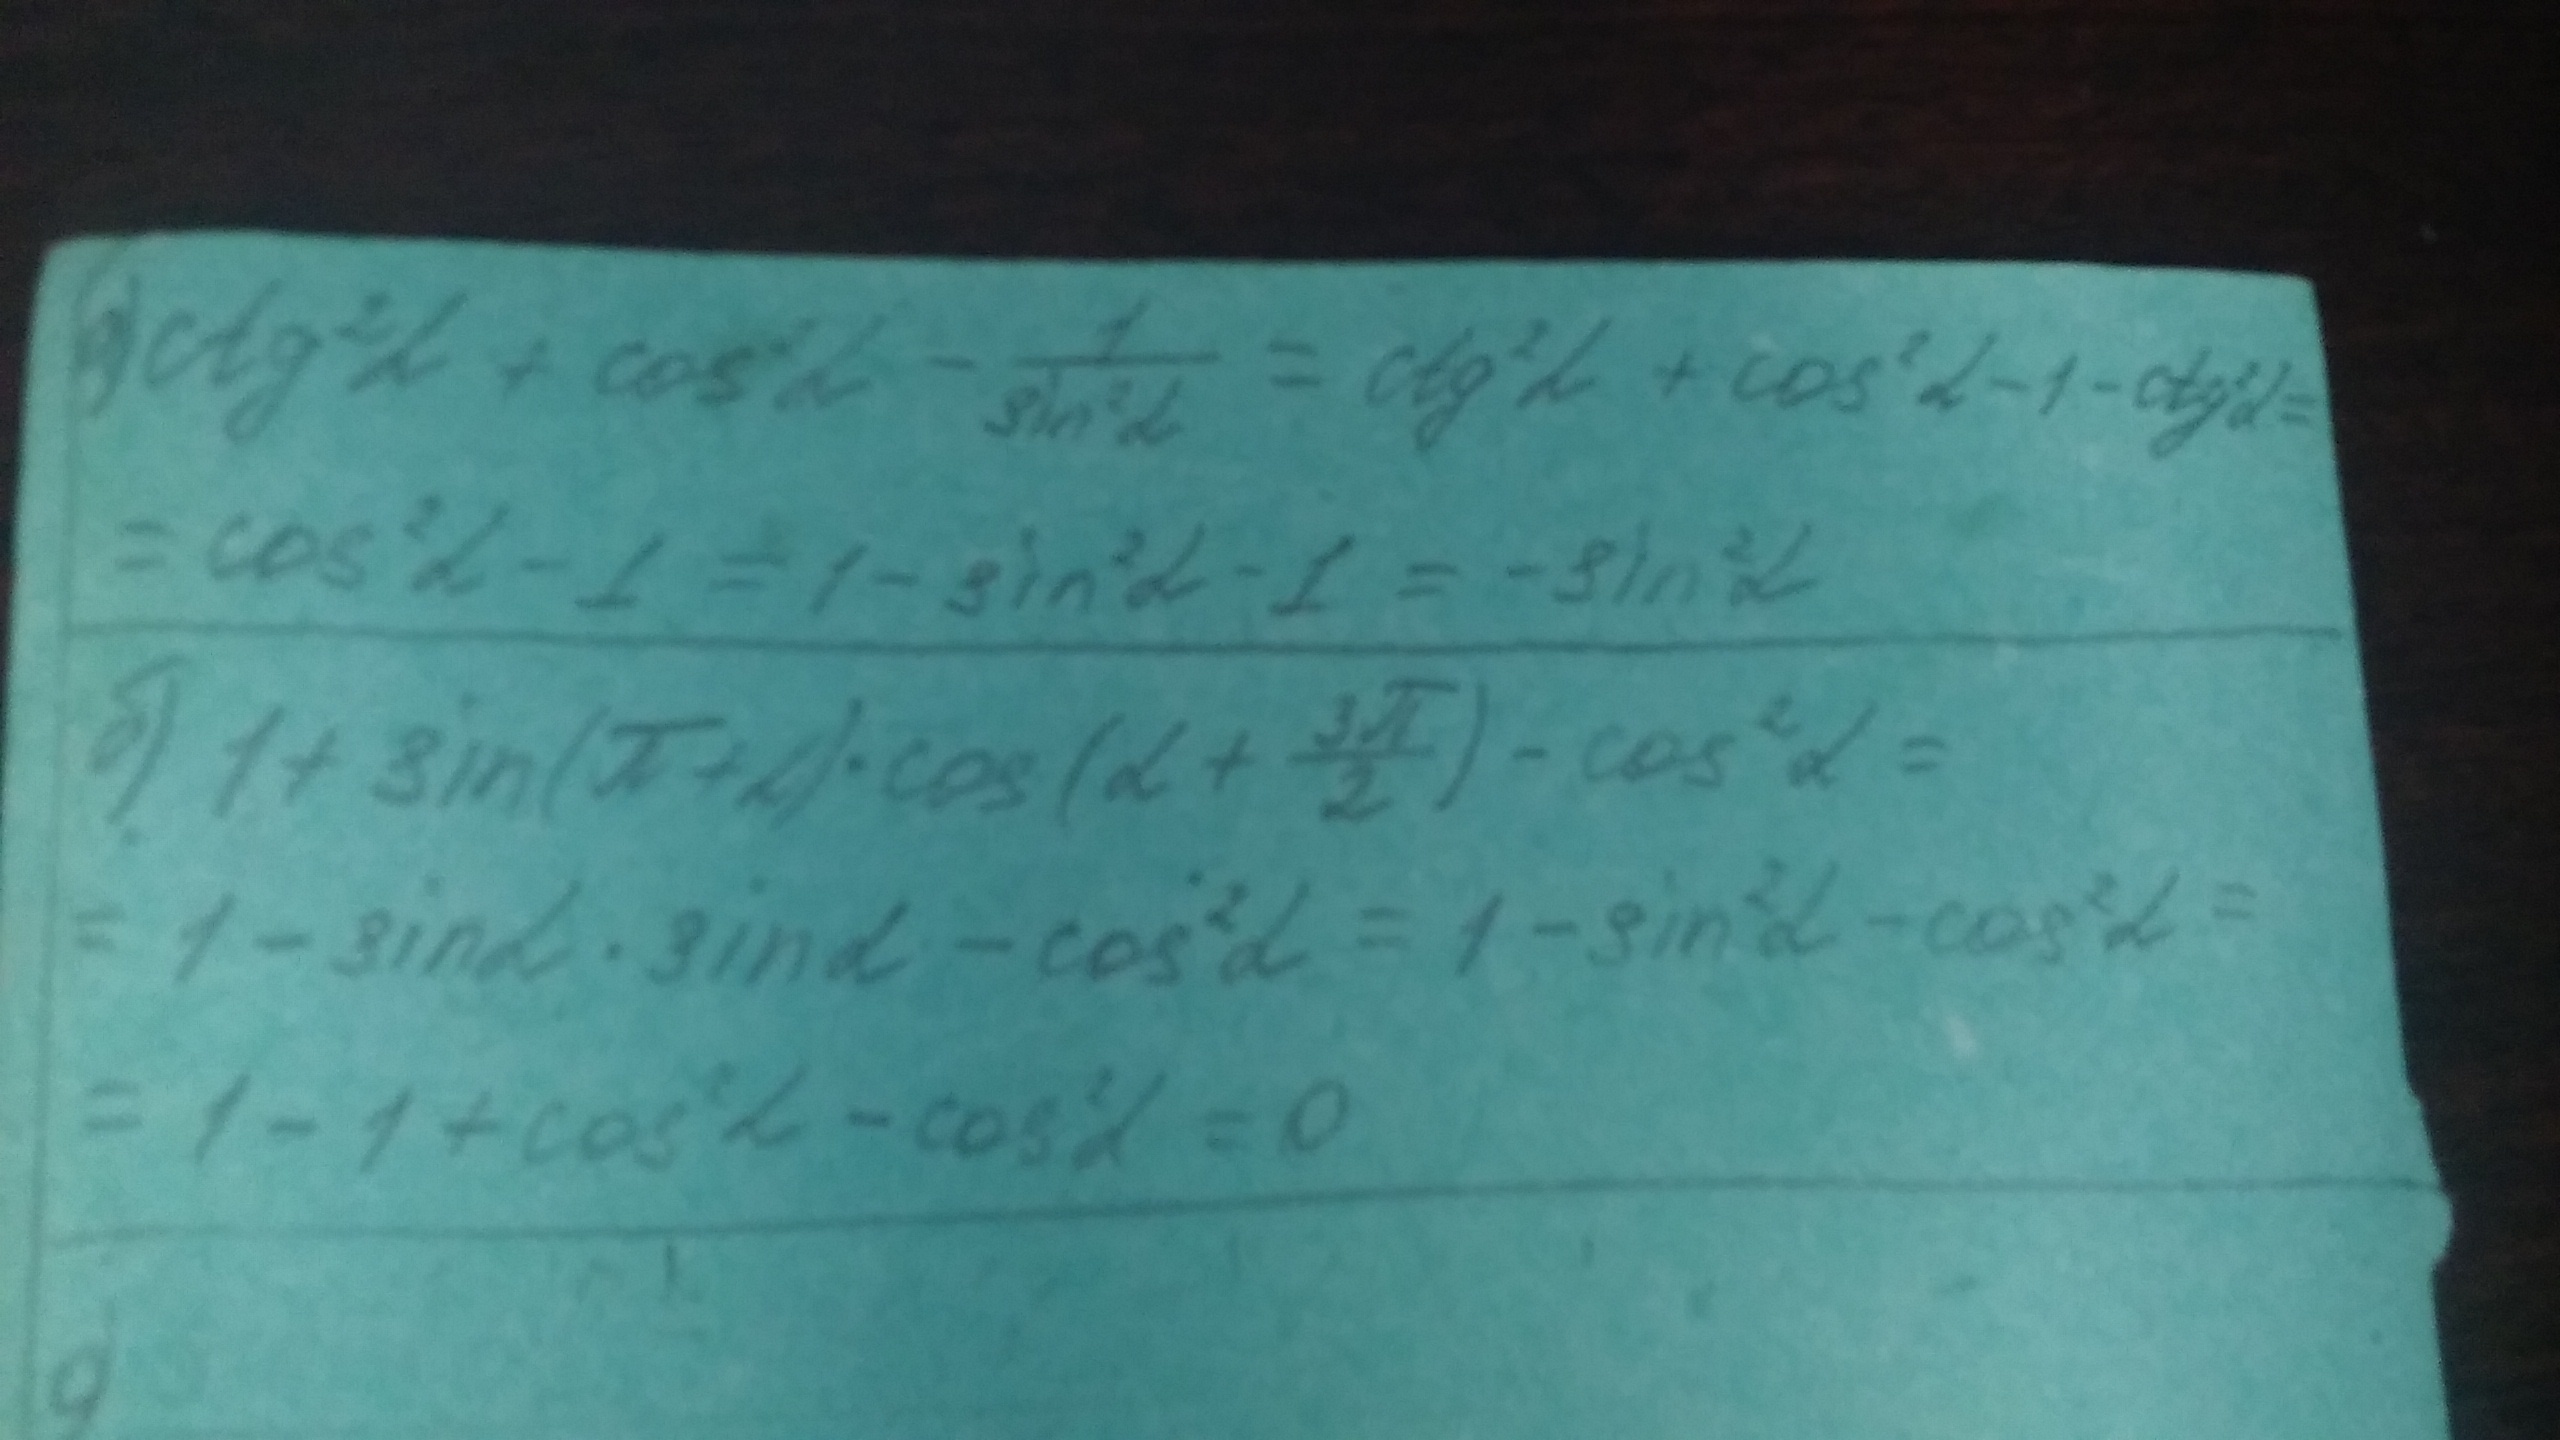 а) ctg²α + cos²α - 1/sin²α = ctg²α + cos²α - 1 - ctg²α =
= cos²α - 1 = 1 - sin²α - 1 = -sin²α
б) 1 + sin(π+α)·cos(α + 3π/2) - cos²α =
= 1 - sinα · sinα - cos²α = 1 - sin²α - cos²α =
= 1 - 1 + cos²α - cos²α = 0